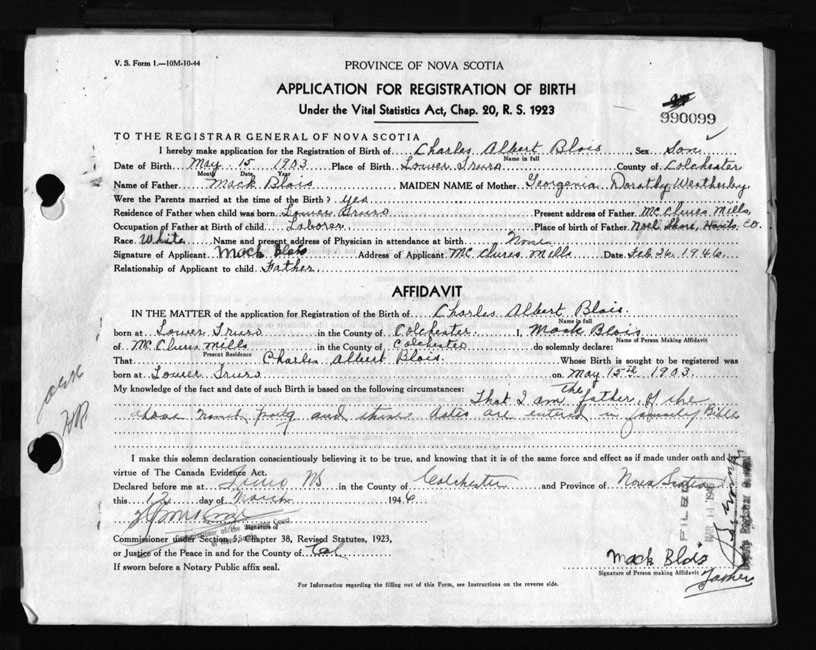 V. S. Form 1.—10M-10-44
PROVINCE OF NOVA SCOTIA
APPLICATION FOR REGISTRATION OF BIRTH
Under the Vital Statistics Act, Chap. 20, R. S. 1923
990099
TO THE REGISTRAR GENERAL OF NOVA SCOTIA
I hereby make application for the Registration of Birth of Charles Albert Blois Sex Son
Name in full
Date of Birth May 15 1903 Place of Birth Lower Truro County of Colchester
Month Date Year
Name of Father Mack Blois MAIDEN NAME of Mother Georgenia Dorathy Weatherby
Were the Parents married at the time of the Birth? yes
Residence of Father when child was born Lower Truro Present address of Father McClures Mills
Occupation of Father at Birth of child Laborer Place of birth of Father Noel Shore, Hants Co.
Race White Name and present address of Physician in attendance at birth None
Signature of Applicant Mack Blois Address of Applicant McClures Mills Date Feb 26, 1946
Relationship of Applicant to child Father
AFFIDAVIT
IN THE MATTER of the application for Registration of the Birth of Charles Albert Blois
Name in full
born at Lower Truro in the County of Colchester I, Mack Blois
Name of Person Making Affidavit
of McClures Mills in the County of Colchester do solemnly declare:
Present Residence
That Charles Albert Blois Whose Birth is sought to be registered was
born at Lower Truro on May 15th 1903
My knowledge of the fact and date of such Birth is based on the following circumstances:
That I am the father of the
above named party and dates are entered in family Bible
I make this solemn declaration conscientiously believing it to be true, and knowing that it is of the same force and effect as if made under oath and by
virtue of The Canada Evidence Act.
Declared before me at Truro NS in the County of Colchester and Province of Nova Scotia
this 12 day of March 1946
Signature of
Commissioner under Section 5, Chapter 38, Revised Statutes, 1923,
or Justice of the Peace in and for the County of Col
If sworn before a Notary Public affix seal.
Mack Blois
Signature of Person making Affidavit
Father
FILED
MAR 14 1946
Deputy Registrar General
For Information regarding the filling out of this Form, see Instructions on the reverse side.